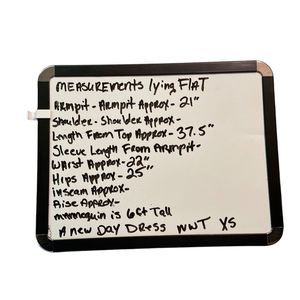 MEASUREMENTS lying FLAT
Armpit - Armpit Approx - 21"
Shoulder - Shoulder Approx -
Length From Top Approx - 37.5"
Sleeve Length From Armpit -
Waist Approx - 22"
Hips Approx - 25"
inseam Approx -
Rise Approx -
mannequin is 6ft Tall
A new DAY Dress NWT XS